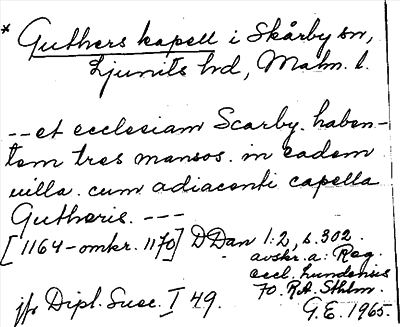 * Guthers kapell i Skårby sn,
Ljunits hd, Malm. l.
-- et ecclesiam Scarby. haben-
tem tres mansos. in eadem
uilla. cum adiacenti capella
Gutheris. ---
[1164-omkr. 1170] DDan 1:2, s. 302.
avskr. a. Reg.
eccl. lundensis
70. R.A. Sthlm.
jfr Dipl. Suec. I 49.
G.E. 1965.